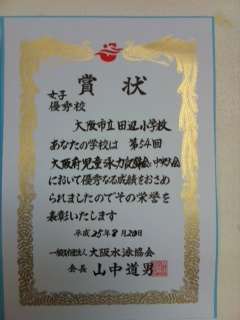 賞状
女子
優秀校
大阪市立田辺小学校
あなたの学校は 第54回
大阪府児童泳力記録会中央大会
において優秀なる成績をおさめ
られましたのでその栄誉を
表彰いたします
平成25年8月20日
一般財団法人 大阪水泳協会
会長 山中道男